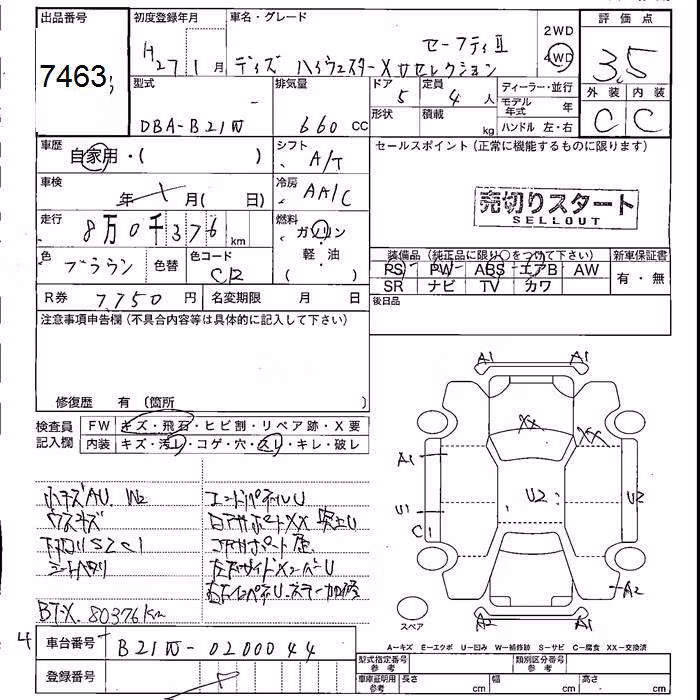 出品番号
7463
初度登録年月
H27 1月
車名・グレード
セーフティⅡ
デイズ ハイウェスターX Vセレクション
2WD
4WD
評価点
3.5
外装 内装
C C
型式
DBA-B21W
排気量
660 CC
ドア
5
定員
4人
形状
積載
kg
ディーラー・並行
モデル年式 年
ハンドル 左・右
車歴
自家用・( )
シフト
A/T
セールスポイント (正常に機能するものに限ります)
車検
年 月( 日)
冷房
AA/C
売切りスタート
SELLOUT
走行
8万0千376km
燃料
ガソリン
軽・油
( )
色
ブラウン
色替
色コード
装備品 (純正品に限り○をつけて下さい)
新車保証書
PS PW ABS エアB AW
SR ナビ TV カワ
有・無
R券 7,750円
名変期限 月 日
後日品
注意事項申告欄(不具合内容等は具体的に記入して下さい)
修復歴 有 (箇所 )
検査員記入欄
FW キズ・飛石・ヒビ割・リペア跡・X要
内装 キズ・汚レ・コゲ・穴・スレ・キレ・破レ
小キズAU、W2
ウスキズ
シートヘタリ
エンドパネルU
BT-X. 80376km
A1 A1
XX
XX
A1
U1
C1
U2
U2
A2
A2 A1
スペア
4
車台番号 B21W-0200044
登録番号
A-キズ E-エクボ U-凹み W-補修跡 S-サビ C-腐食 XX-交換済
型式指定番号 参考
類別区分番号 参考
車庫証明用 参考
長さ cm
幅 cm
高さ cm